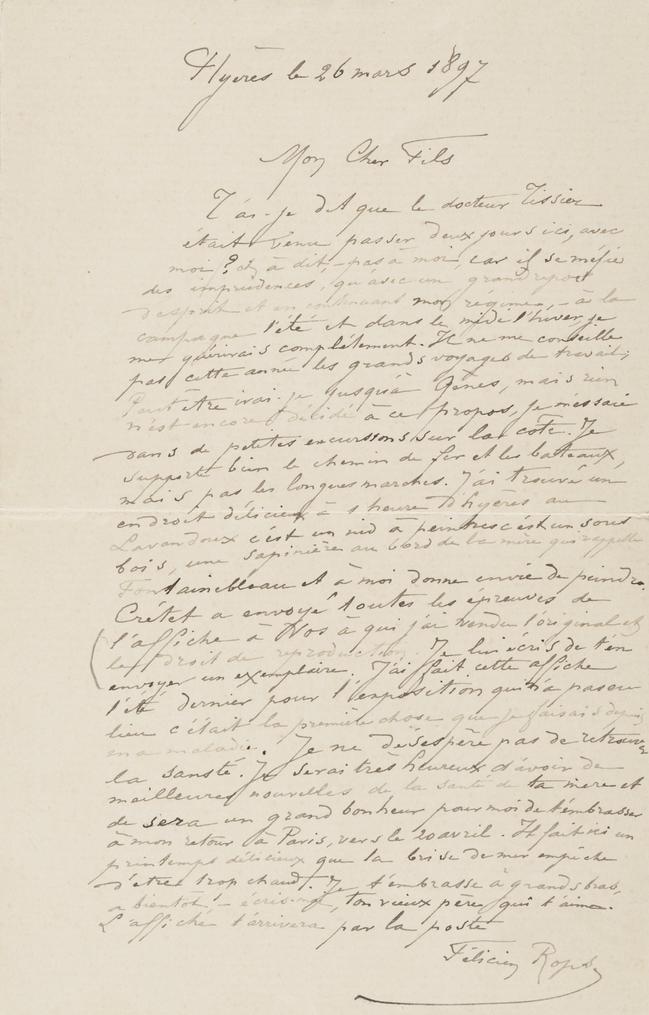 Hyères le 26 mars 1897
Mon Cher Fils
T'ai-je dit que le docteur Tissier
était venu passer deux jours ici, avec
moi? Il à dit, - pas à moi, car il se méfie
des imprudences, qu'avec un grand repos
d'esprit et en continuant mon régime, - à la
campagne l'été et dans le midi l'hiver, je
me guérirais complètement. Il ne me conseille
pas cette année les grands voyages de travail;
Peut être irai-je jusquà Gênes, mais rien
n'est encore décidé à ce propos, je m'essaie
dans de petites excurssons sur la côte. Je
supporte bien le chemin de fer et les bateaux,
mais pas les longues marches. J'ai trouvé un
endroit délicieux à 1 heure d'hyères au
Lavandoux c'est un nid à peintres c'est un sous
bois, une sapinière au bord de la mère qui rappelle
Fontainebleau et à moi donne envie de peindre.
Crétet a envoyé toutes les épreuves de
(l'affiche à Nos à qui j'ai vendu l'original et
le droit de reproduction. Je lui écris de t'en
envoyer un exemplaire. J'ai fait cette affiche
l'été dernier pour l'exposition qui n'a pas eu
lieu c'était la première chose que je faisais depuis
ma maladie. Je ne désespère pas de retrouver
la santé. Je serai tres heureux d'avoir de
meilleures nouvelles de la santé de ta mère et
de sera un grand bonheur pour moi de t'embrasser
à mon retour à Paris, vers le 20 avril. Il fait ici un
printemps délicieux que la brise de mer empêche
d'etre trop chaud. Je t'embrasse à grands bras,
a bientôt! - écris-moi, ton vieux père qui t'aime.
L'affiche t'arrivera par la poste
Félicien Rops